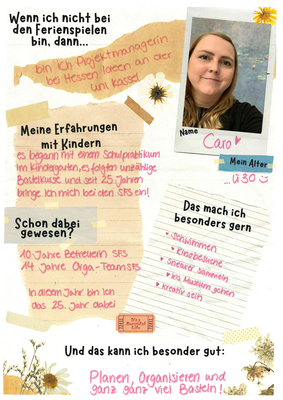 Wenn ich nicht bei
den Ferienspielen
bin, dann...
bin ich Projektmanagerin
bei Hessen Ideen an der
Uni Kassel
Name
Caro
Mein Alter
...ü30
Meine Erfahrungen
mit Kindern
es begann mit einem Schulpraktikum
im Kindergarten, es folgten unzählige
Bastelkurse und seit 25 Jahren
bringe ich mich bei den SFS ein!
Schon dabei
gewesen?
10 Jahre Betreuerin SFS
14 Jahre Orga-Team SFS
In diesem Jahr bin ich
das 25. Jahr dabei
Das mach ich
besonders gern
Schwimmen
Kinobesuche
Sneaker sammeln
ins Museum gehen
kreativ sein
Und das kann ich besonder gut:
Planen, Organisieren und
ganz ganz viel Basteln!